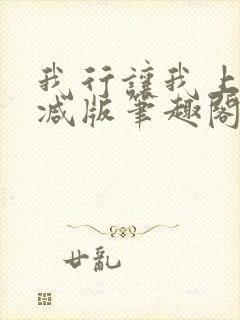 我行讓我上
减版筆趣閣
廿亂